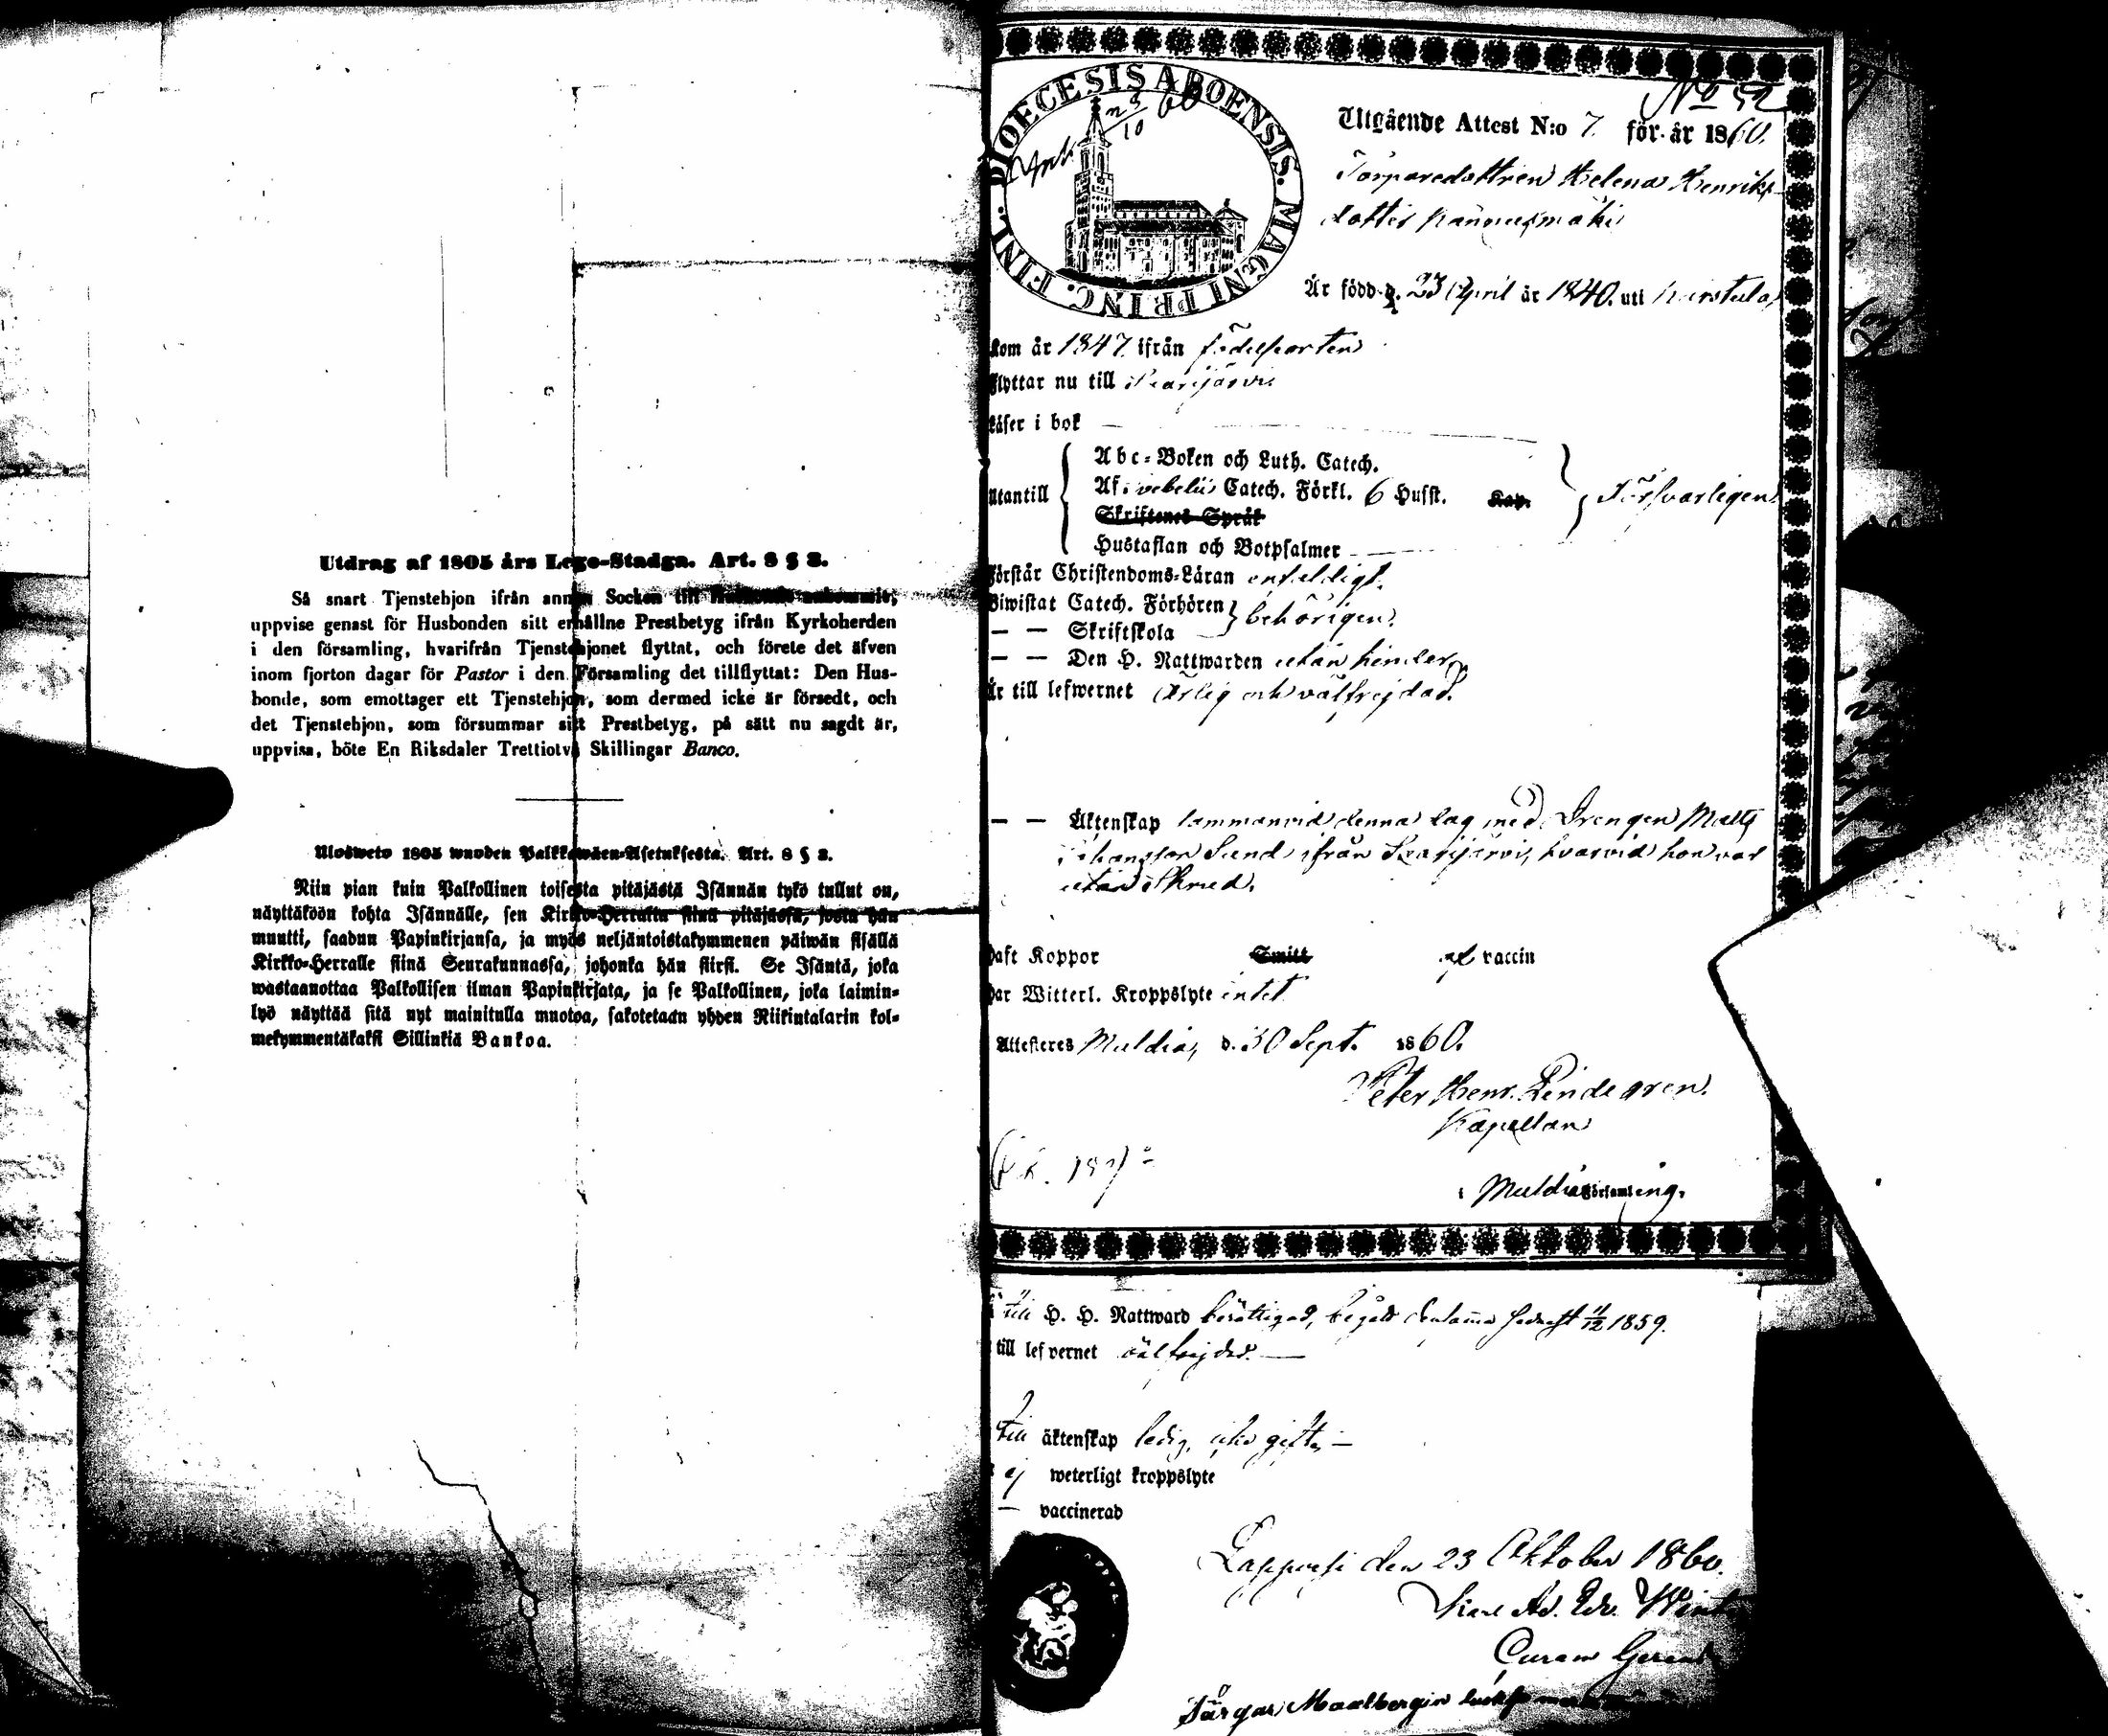 Utdrag af 1805 års Lego-Stadga. Art. 8 § 3.
Så snart Tjenstehjon ifrån annan Socken till
uppvise genast för Husbonden sitt erhållne Prestbetyg ifrån Kyrkoherden
i den församling, hvarifrån Tjenstehjonet flyttat, och förete det äfven
inom fjorton dagar för Pastor i den Församling det tillflyttat: Den Hus-
bonde, som emottager ett Tjenstehjon, som dermed icke är försedt, och
det Tjenstehjon, som försummar sitt Prestbetyg, på sätt nu sagdt är,
uppvisa, böte En Riksdaler Trettiotvå Skillingar Banco.
Ulosweto 1805 wuoden Palkkawäen-Asetuksesta. Art. 8 § 3.
Niin pian kuin Palkollinen toisesta pitäjästä Isännän tykö tullut on,
näyttäköön kohta Isännälle, sen Kirkko-Herralta siinä pitäjässä, josta hän
muutti, saadun Papinkirjansa, ja myös neljäntoistakymmenen päiwän sisällä
Kirkko-Herralle siinä Seurakunnassa, johonka hän siirsi. Se Isäntä, joka
wastaanottaa Palkollisen ilman Papinkirjata, ja se Palkollinen, joka laimin-
lyö näyttää sitä nyt mainitulla muotoa, sakotetaan yhden Riikintalarin kol-
mekymmentäkaksi Sillinkiä Bankoa.
DIOECESIS ABOENSIS. MAGNI PRINC. FINL.
23/10 60
No 52
Utgående Attest N:o 7. för år 1860.
Torparedottren Helena Henriks-
dotter Pannusmäki
Är född d. 23 April år 1840. uti Karstula,
kom år 1847 ifrån födelseorten
Flyttar nu till Saarijärvi
Läser i bok
Abc-Boken och Luth. Catech.
Utantill Svebelii Catech. Förkl. 6 Husst. Kap. Försvarligen.
Skriftenes Språk
Hustaflan och Botpsalmer
Förstår Christendoms-Läran enfaldigt.
Biwistat Catech. Förhören behörigen.
— — Skriftskola
— — Den H. Nattwarden utan hinder
Är till lefwernet Ärlig och välfrejdad.
— — Äktenskap sammanvid denna dag med Drengen Matts
Johansson Sund ifrån Saarijärvi, hvarvid hon var
utan
Haft Koppor Smitt vaccin
Har Witterl. Kroppslyte intet
Attesteres Muldia, d. 30 Sept. 1860.
Peter Henr. Lindegren.
Kapellan
i Muldia Församling.
till H. H. Nattward berättigad, begått densamma sednast 11/12 1859.
till lefvernet välfrejdad. —
till äktenskap ledig, icke gift. —
ej weterligt kroppslyte
— vaccinerad
Lappvesi den 23 Oktober 1860.
Curam Gerens